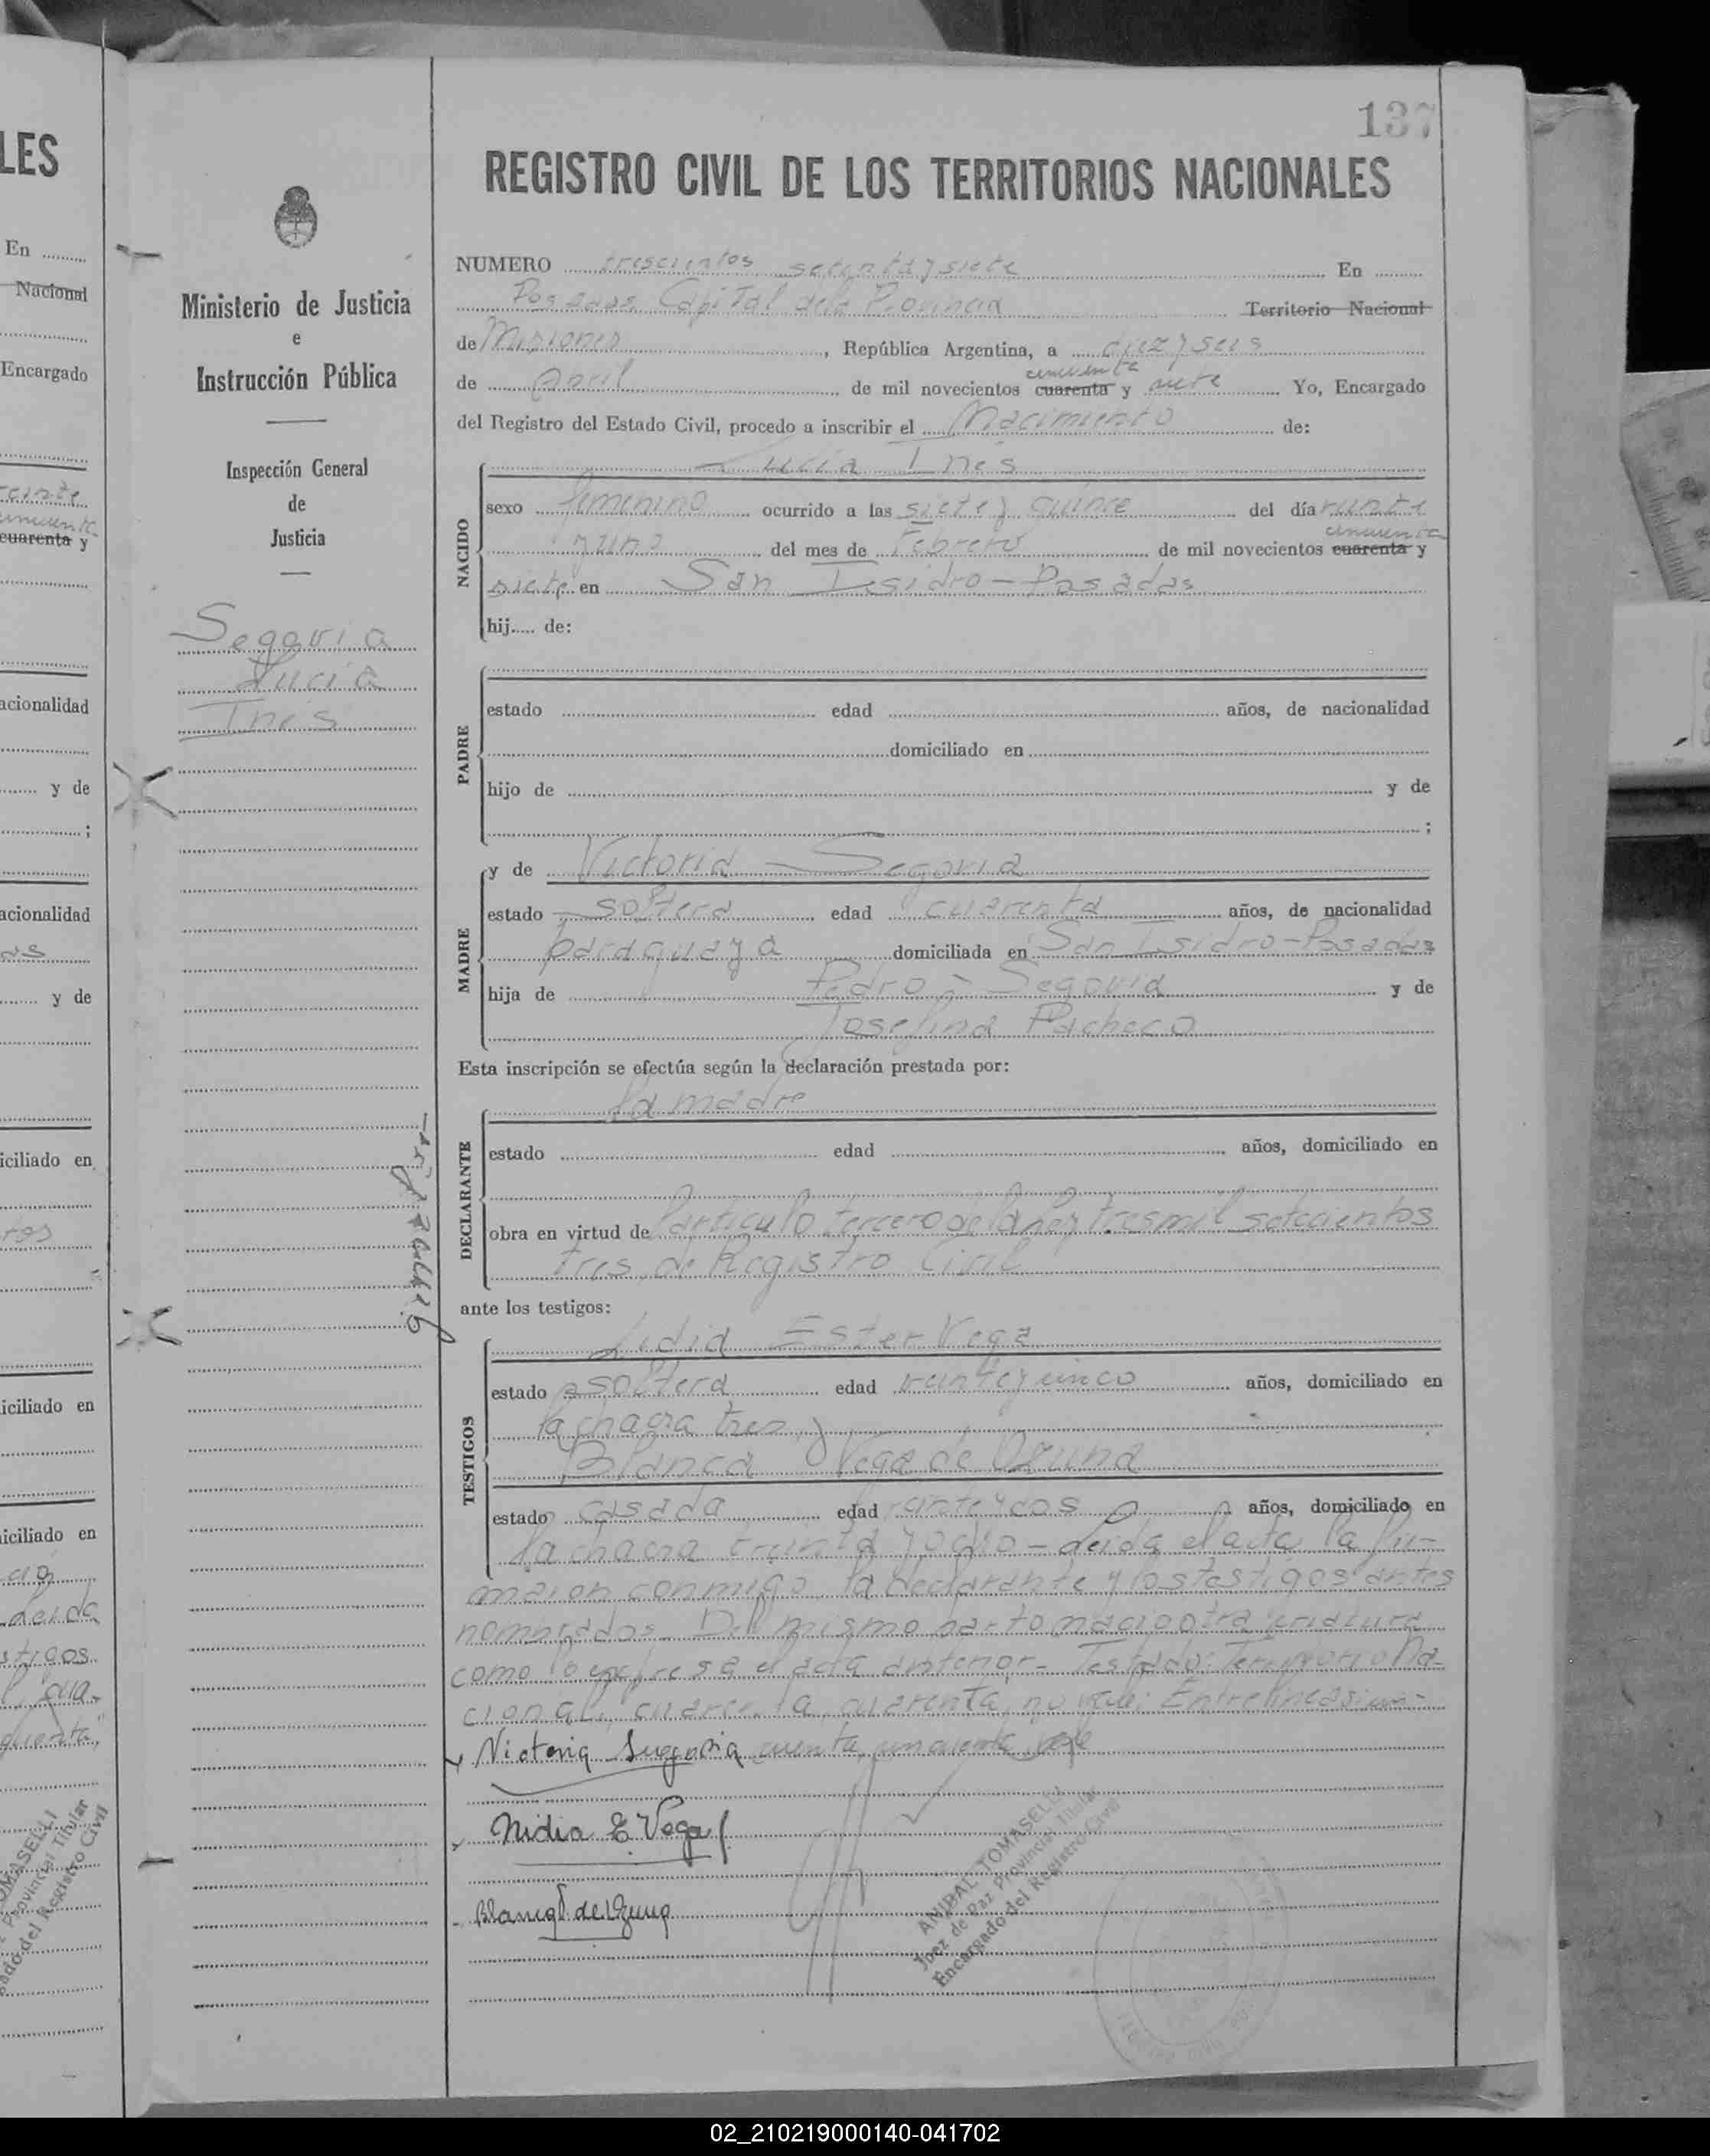 137
REGISTRO CIVIL DE LOS TERRITORIOS NACIONALES
NUMERO trescientos setenta y siete En
Posadas Capital de la Provincia Territorio Nacional
de Misiones, República Argentina, a diez y seis
cincuenta
de Abril de mil novecientos cuarenta y siete Yo, Encargado
del Registro del Estado Civil, procedo a inscribir el Nacimiento de:
NACIDO
Lucia Ines
sexo femenino ocurrido a las siete y quince del día veinte
cincuenta
y uno del mes de Febrero de mil novecientos cuarenta y
siete en San Isidro - Posadas
hij..... de:
PADRE
estado edad años, de nacionalidad
domiciliado en
hijo de y de
;
MADRE
y de Victoria Segovia
estado soltera edad cuarenta años, de nacionalidad
paraguaya domiciliada en San Isidro - Posadas
hija de Pedro Segovia y de
Joselina Pacheco
Esta inscripción se efectúa según la declaración prestada por:
DECLARANTE
la madre
estado edad años, domiciliado en
obra en virtud de l'articulo tercero de la ley tres mil setecientos
tres de Registro Civil
ante los testigos:
TESTIGOS
Lidia Ester Vega
estado soltera edad veinte y cinco años, domiciliado en
la chacra tres y
Blanca Vega de Ozuna
estado casada edad veinte y dos años, domiciliado en
la chacra treinta y ocho - Leida el acta la fir-
maron conmigo la declarante y los testigos antes
nombrados. Del mismo parto nació otra criatura
como lo expresa el acta anterior - Testado: Territorio Na-
cional, cuarenta, cuarenta, no vale: Entrelineas: cin-
cuenta, cincuenta vale
Victoria Segovia
Nidia E Vega
Blanca V. de Ozuna
ANIBAL TOMASELLI
Juez de Paz Provincial Titular
Encargado del Registro Civil
Ministerio de Justicia
e
Instrucción Pública
Inspección General
de
Justicia
Segovia
Lucia
Ines
LES
En
Nacional
Encargado
cuarenta y
acionalidad
y de
;
acionalidad
y de
iciliado en
iciliado en
iciliado en
Leida
02_210219000140-041702